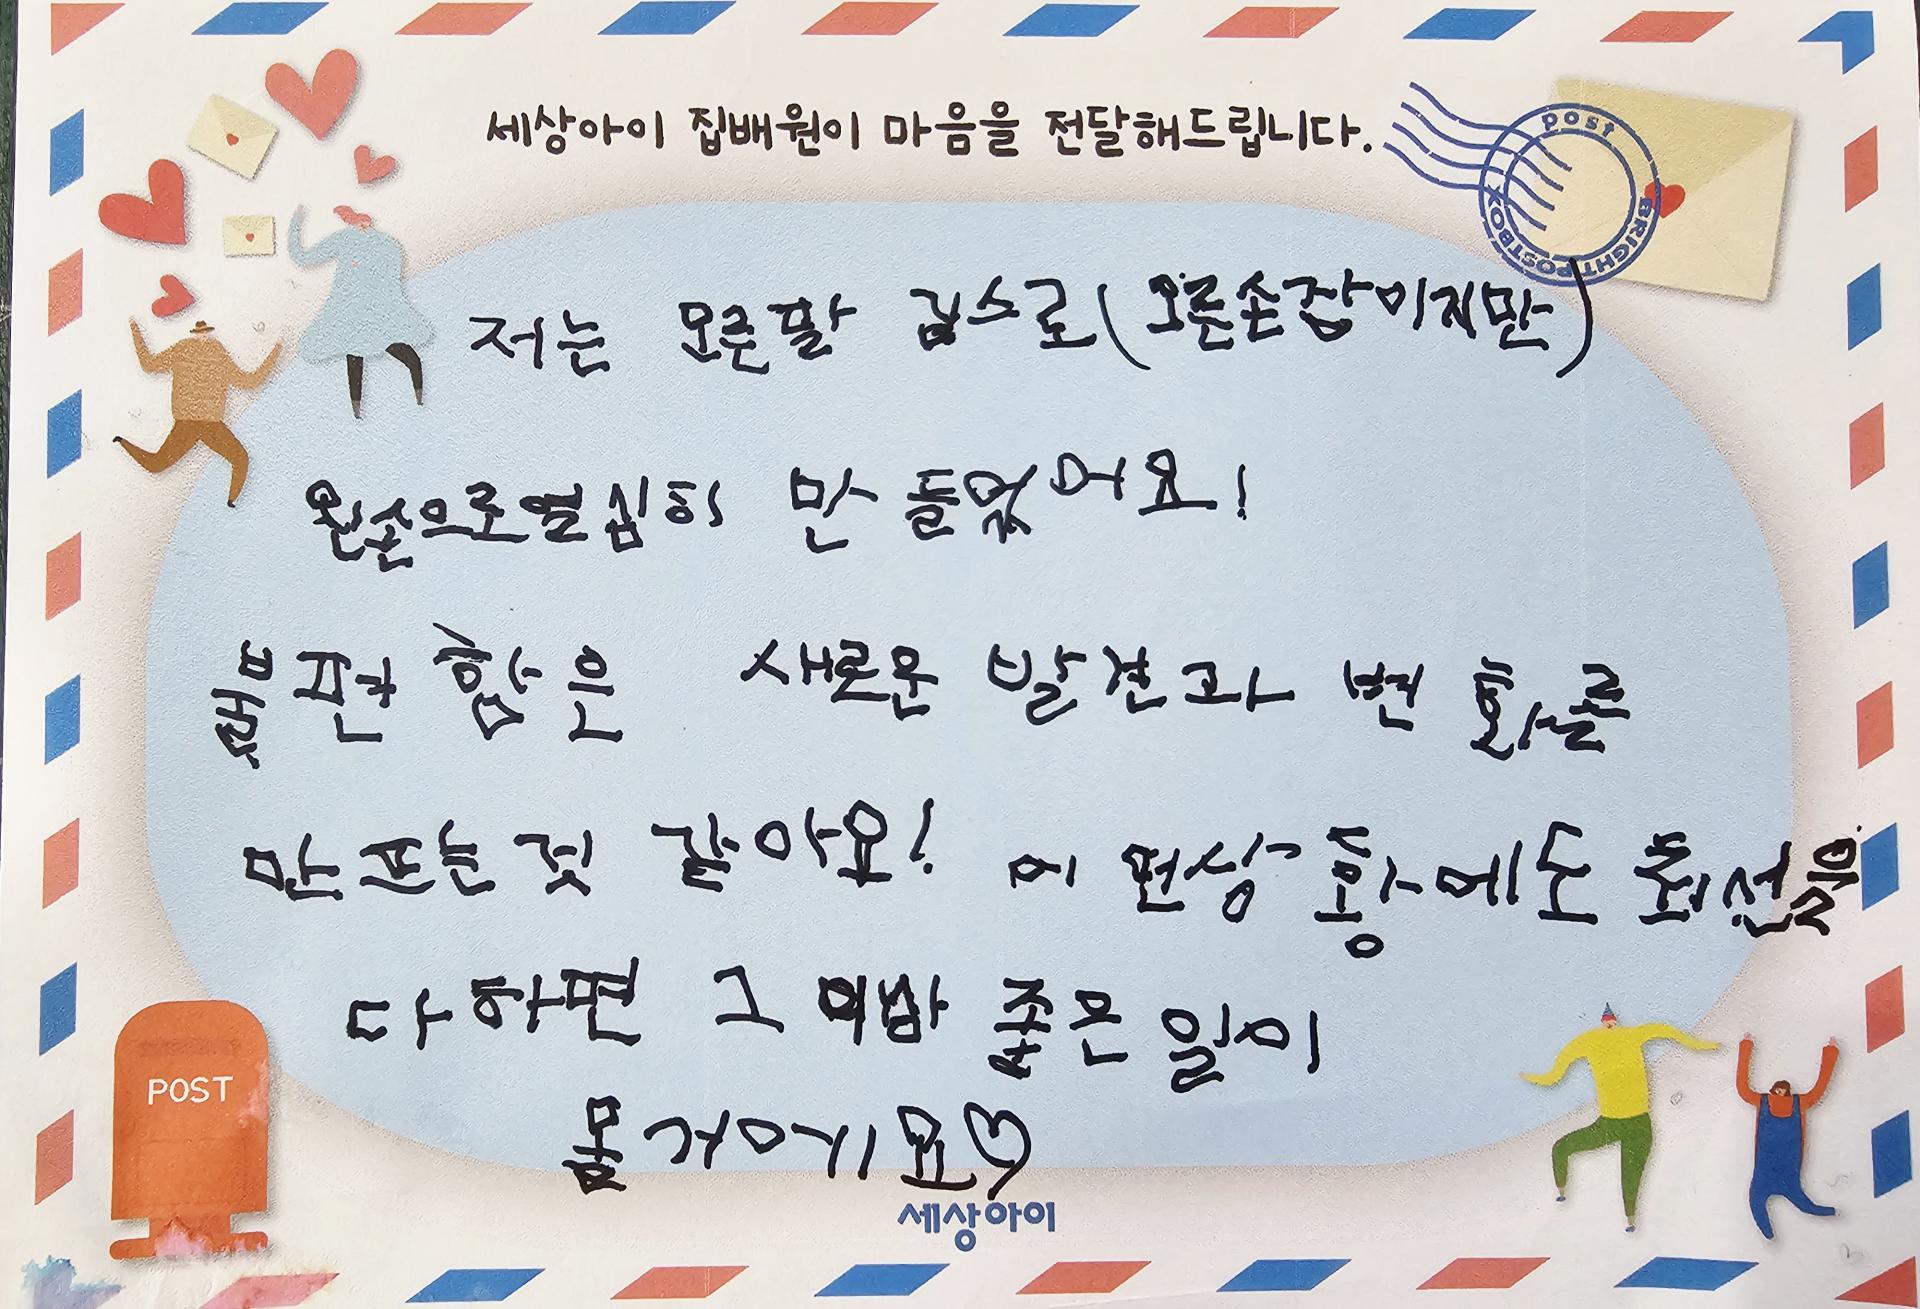 세상아이 집배원이 마음을 전달해드립니다.
post
BRIGHT POST BOX
저는 오른팔 깁스로(오른손잡이지만)
왼손으로열심히 만들었어요!
불편함은 새로운 발견과 변화를
만드는것 같아요! 어떤상황에도 최선을
다하면 그 의밤 좋은일이
올거에요♡
POST
세상아이